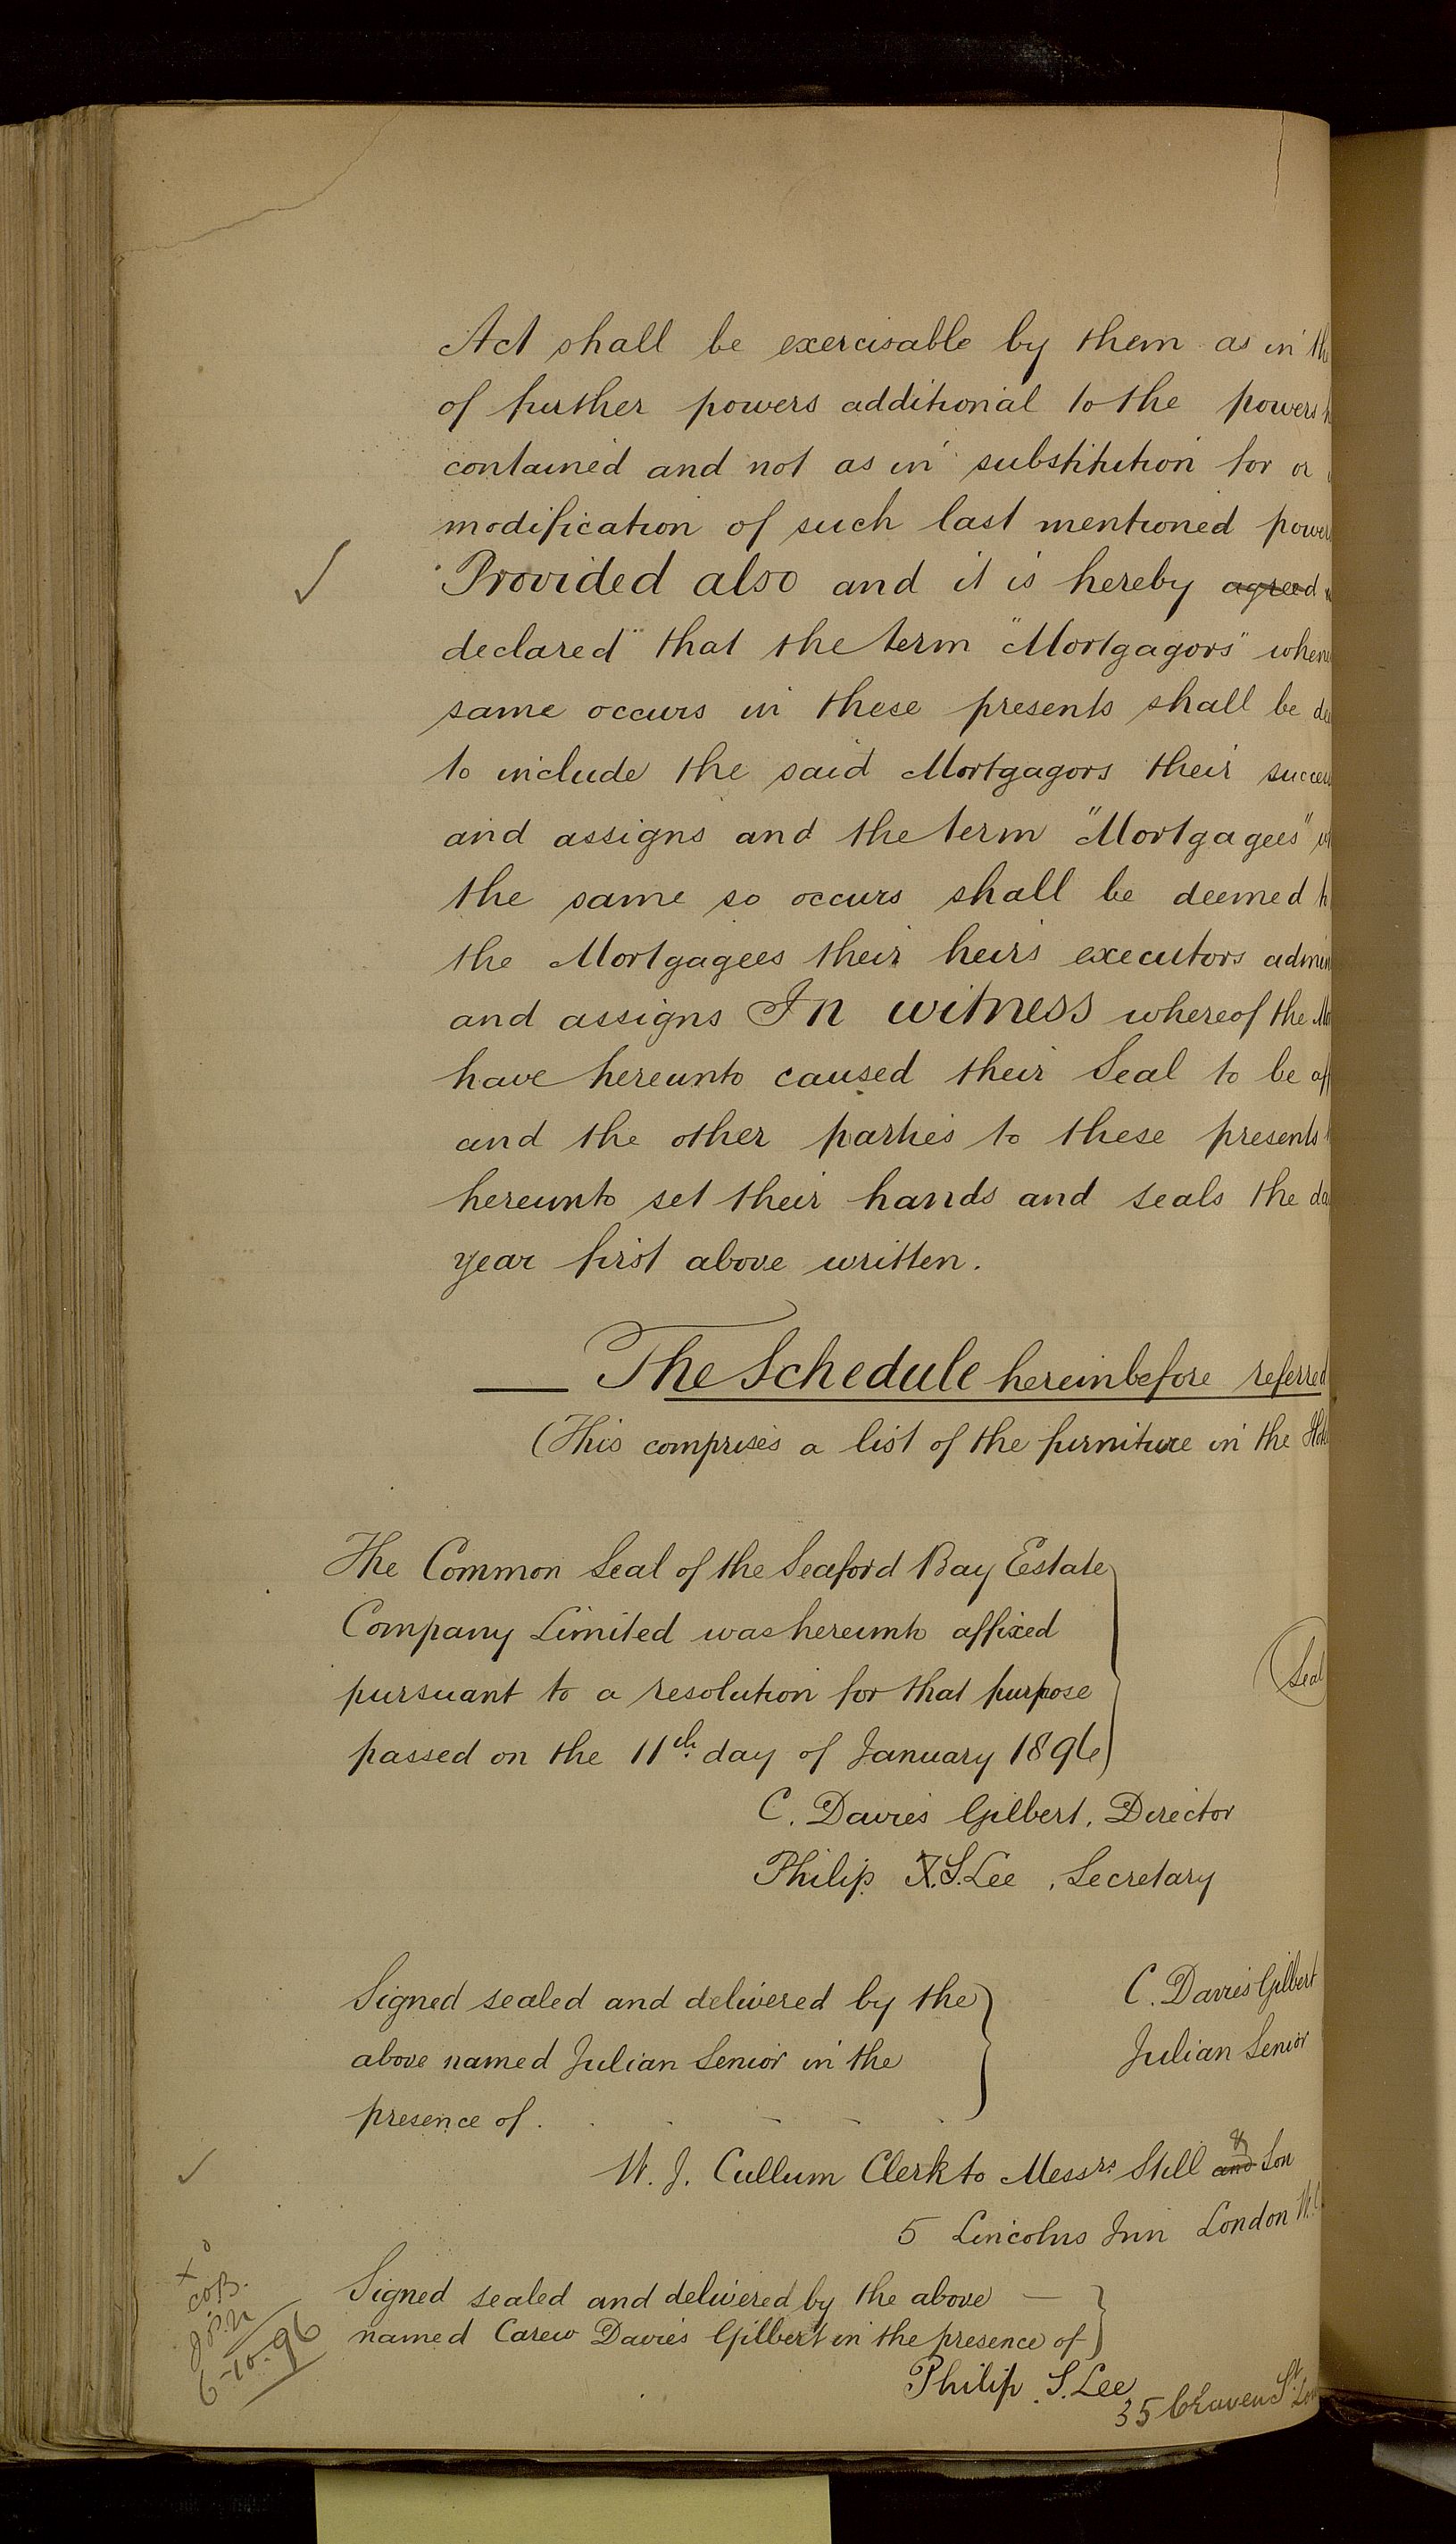 Act shall be exercisable by them as in the
of further powers additional to the powers h
contained and not as in substitution for or
modification of such last mentioned power
Provided also and it is hereby agreed
declared that the term "Mortgagors" when
same occurs in these presents shall be de
to include the said Mortgagors their success
and assigns and the term "Mortgagees" w
the same so occurs shall be deemed t
the Mortgagees their heirs executors admin
and assigns In witness whereof the Mo
have hereunto caused their Seal to be aff
and the other parties to these presents
hereunto set their hands and seals the da
year first above written.
The Schedule hereinbefore referred
(This comprises a list of the furniture in the Hot
The Common Seal of the Seaford Bay Estate
Company Limited was hereunto affixed
pursuant to a resolution for that purpose
passed on the 11th day of January 1896
Seal
C. Davies Gilbert, Director
Philip S. Lee, Secretary
Signed sealed and delivered by the
above named Julian Senior in the
presence of.
C. Davies Gilbert
Julian Senior
W. J. Cullum Clerk to Messrs. Still and & Son
5 Lincolns Inn London W.C.
Signed sealed and delivered by the above
named Carew Davies Gilbert in the presence of
Philip S. Lee
35 Craven St. Lon
6-10-96